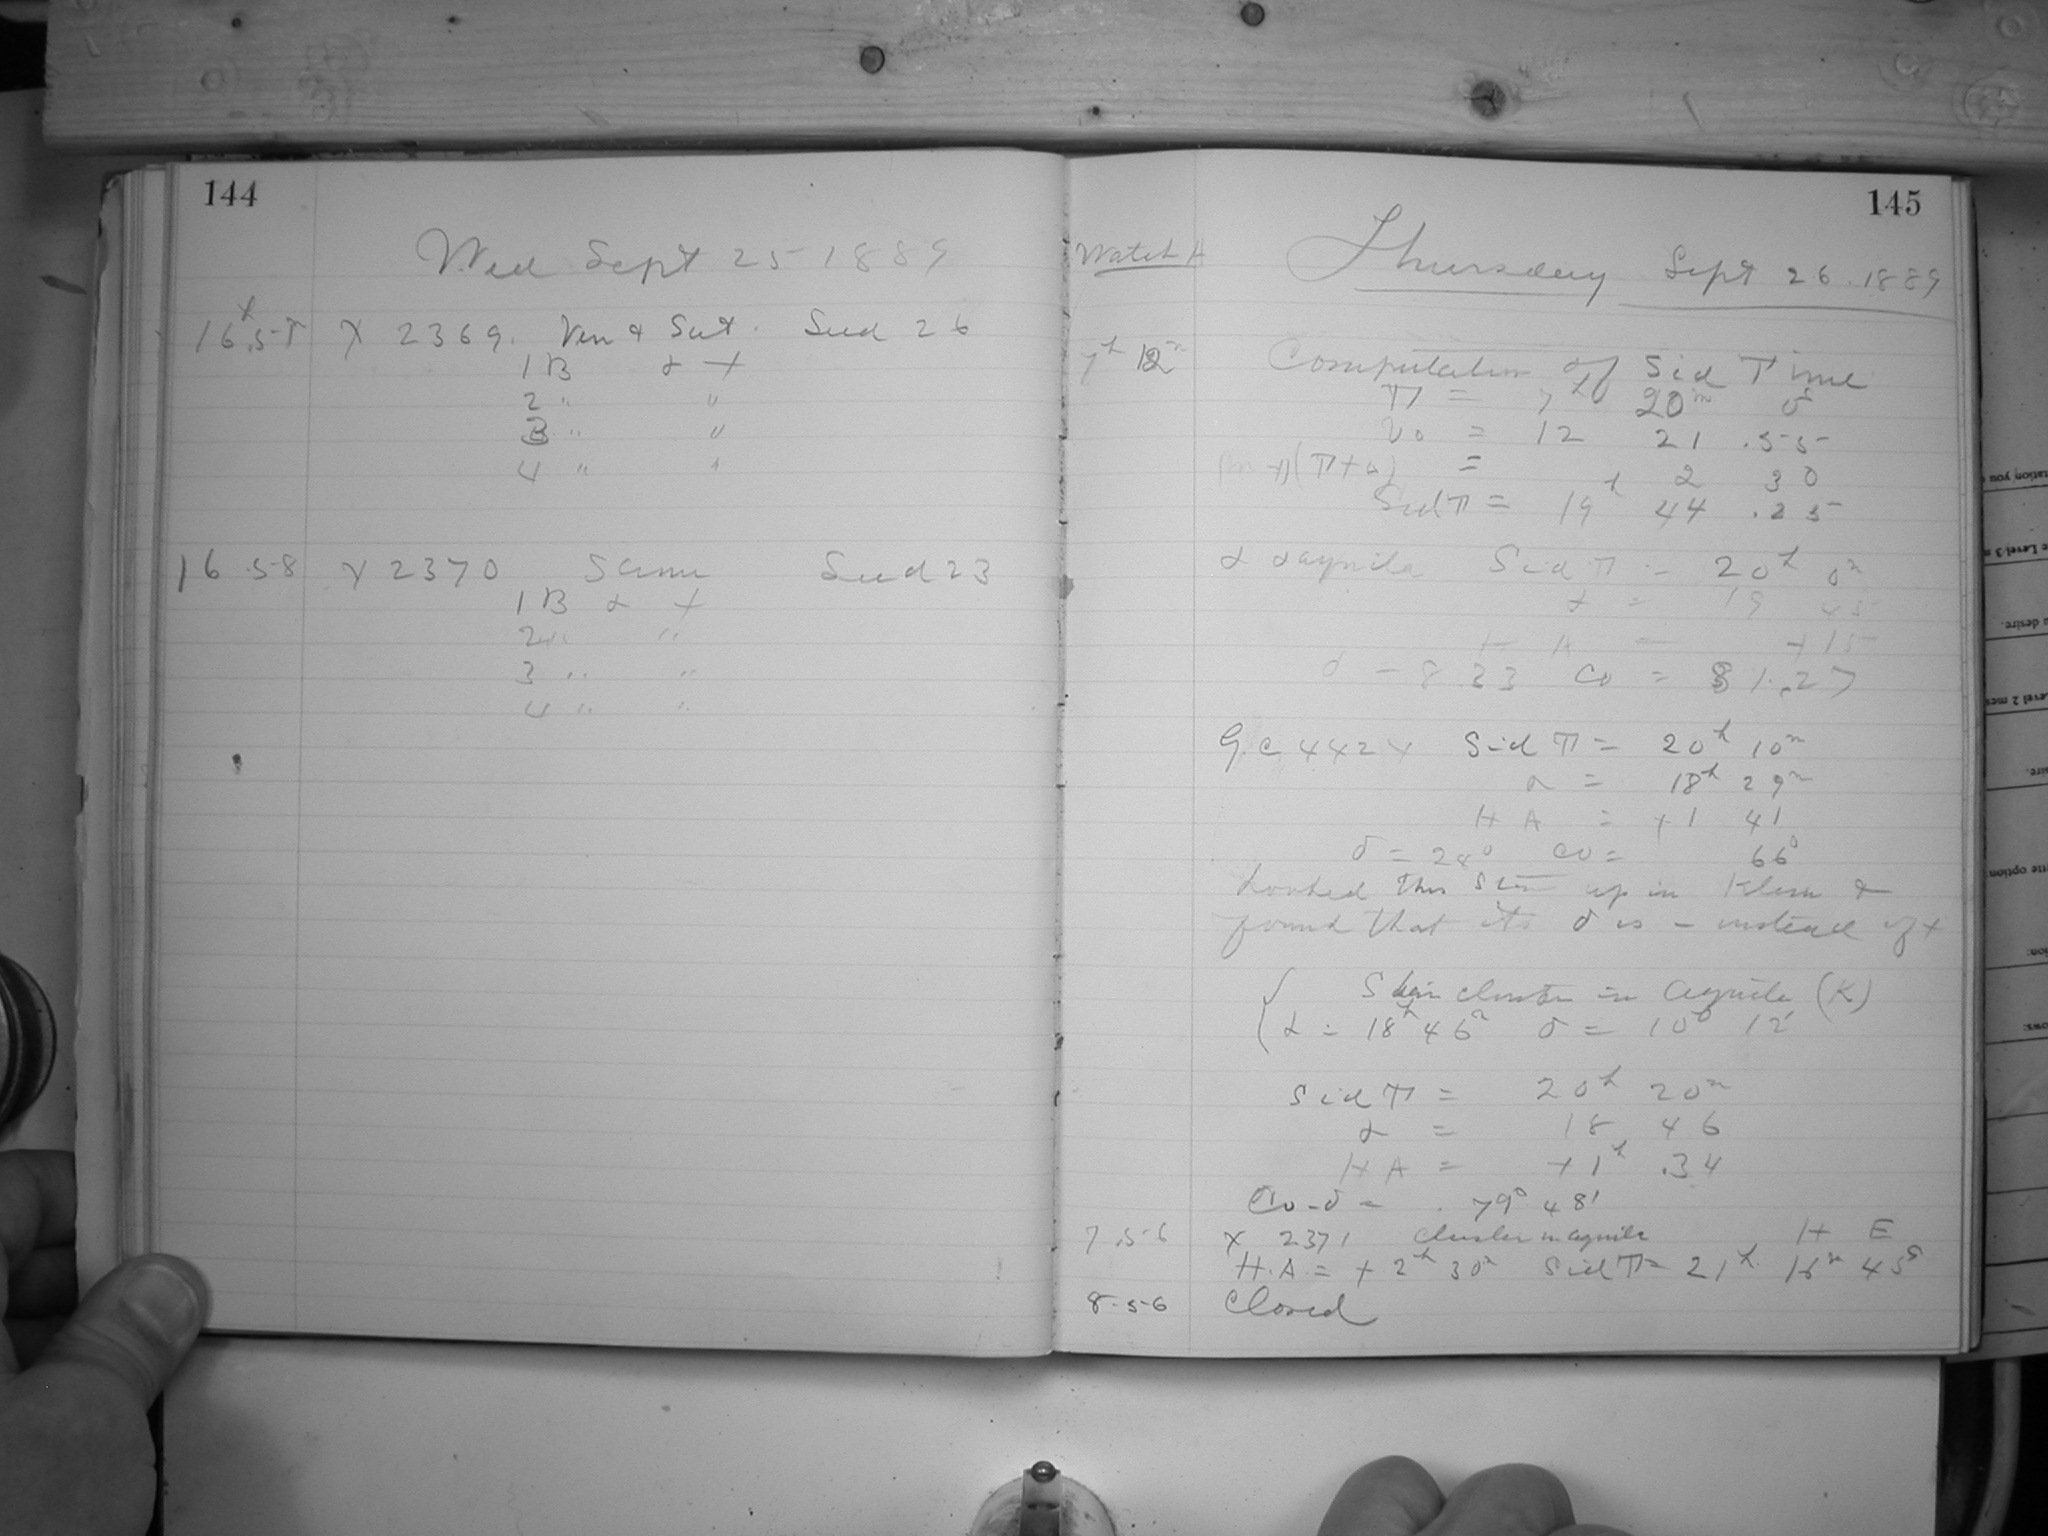 144
Wed Sept 25 1889
16 X 2369. Ven & Sat. Seed 26
1 B & +
2 " "
3 " "
4 " "
16 58 X 2370 Same Seed 23
1 B & +
2 " "
3 " "
4 " "
145
Watch A Thursday Sept 26. 1889
7h 12m Computation of Sid Time
T = 7h 20m 0s
= 12 21 .55
= 2 30
Sid T = 19h 44 .25
α aquila Sid T = 20h 0m
α = 19 45
H A = +15
δ = 8.33 Co = 81.27
G.C 4424 Sid T = 20h 10m
α = 18h 29m
H A = +1 41
δ = 24° Co = 66°
Looked this star up in Klein &
found that its δ is - instead of +
Star cluster in Aquila (K)
α = 18h 46m δ = 10° 12'
Sid T = 20h 20m
α = 18 46
H A = +1h .34
Co-δ = 79° 48'
7.56 X 2371 Cluster in aquila H E
H.A = + 2h 30m Sid T = 21h 16m 45s
8.56 Closed